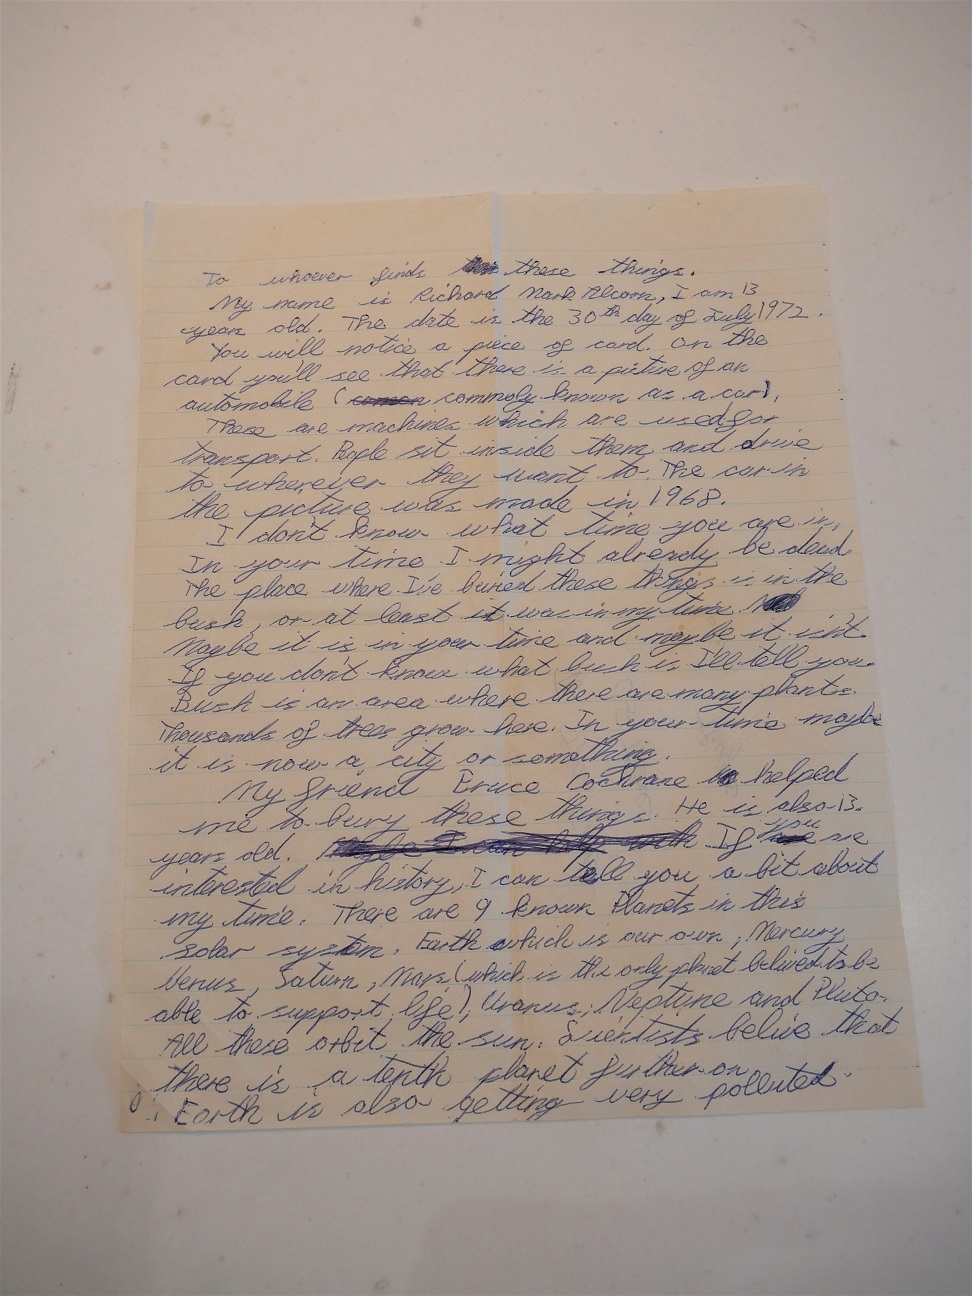 To whoever finds these things.
My name is Richard Mark Alcorn, I am 13
year old. The date is the 30th day of July 1972.
You will notice a piece of card. On the
card you'll see that there is a picture of an
automobile ( commoly known as a car).
These are machines which are used for
transport. People sit inside them and drive
to wherever they want to. The car in
the picture was made in 1968.
I don't know what time you are in.
In your time I might already be dead.
The place where I've buried these things is in the
bush, or at least it was in my time.
Maybe it is in your time and maybe it isn't.
If you don't know what bush is I'll tell you.
Bush is an area where there are many plants.
Thousands of trees grow here. In your time maybe
it is now a city or something.
My friend Bruce Cochrane helped
me to bury these things. He is also 13
years old. Maybe I can help with If you
interested in history, I can tell you a bit about
my time. There are 9 known Planets in this
solar system. Earth which is our own, Mercury
Venus, Saturn, Mars (which is the only planet belived to be
able to support life), Uranus, Neptune and Pluto.
All these orbit the sun. Scientists belive that
there is a tenth planet further on
Earth is also getting very polluted.